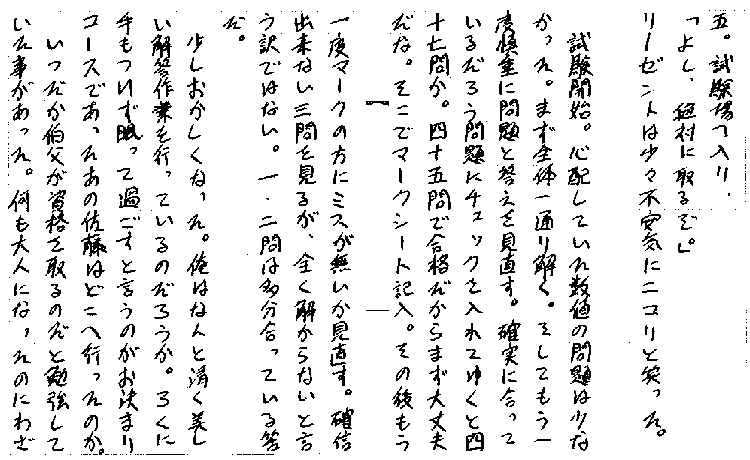 五。試験場へ入り、
「よし、絶対に取るぞ」。
リーゼントは少々不安気にニコリと笑った。
試験開始。心配していた数値の問題は少な
かった。まず全体一通り解く。そしてもう一
度慎重に問題と答えを見直す。確実に合って
いるだろう問題にチェックを入れてゆくと四
十七問か。四十五問で合格だからまず大丈夫
だな。そこでマークシート記入。その後もう
一度マークの方にミスが無いか見直す。確信
出来ない三問を見るが、全く解からないと言
う訳ではない。一・二問は多分合っている筈
だ。
少しおかしくなった。俺はなんと清く美し
い解答作業を行っているのだろうか。ろくに
手もつけず眠って過ごすと言うのがお決まり
コースであったあの佐藤はどこへ行ったのか。
いつだか伯父が資格を取るのだと勉強して
いた事があった。何も大人になったのにわざ